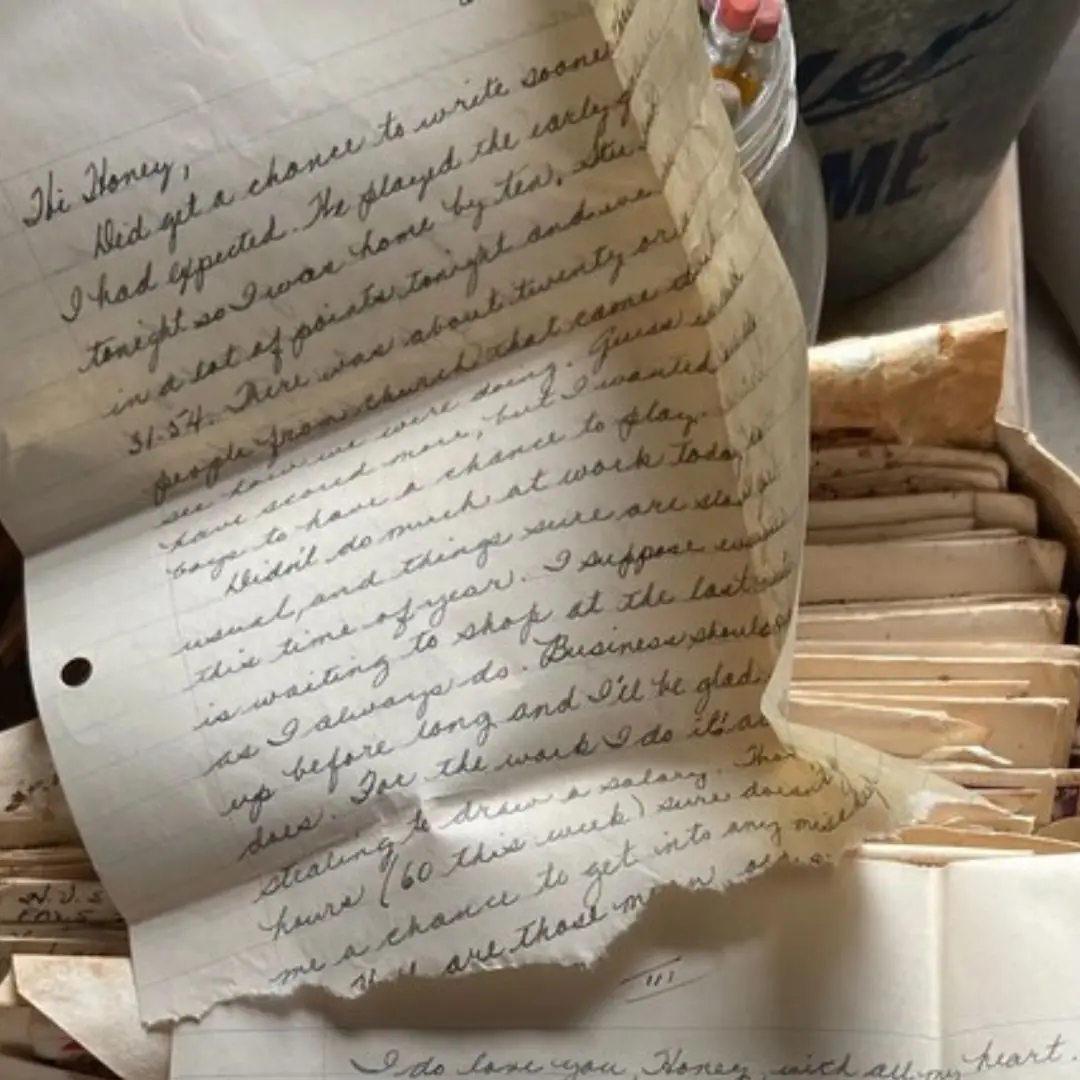 Hi Honey,
Did get a chance to write sooner
I had expected. We played the early
tonight so I was home by ten. Stu
in a lot of points tonight and we
31-54. There was about twenty or
people from church that came
see how we were doing. Guess
have scored more, but I wanted
boys to have a chance to play.
Didn't do much at work today
usual, and things sure are slow
this time of year. I suppose
is waiting to shop at the last
as I always do. Business should
up before long and I'll be glad
does. For the work I do it's
stealing to draw a salary.
hours (60 this week) sure doesn't
me a chance to get into any mischief
are those
III
I do love you, Honey, with all my heart.
ME